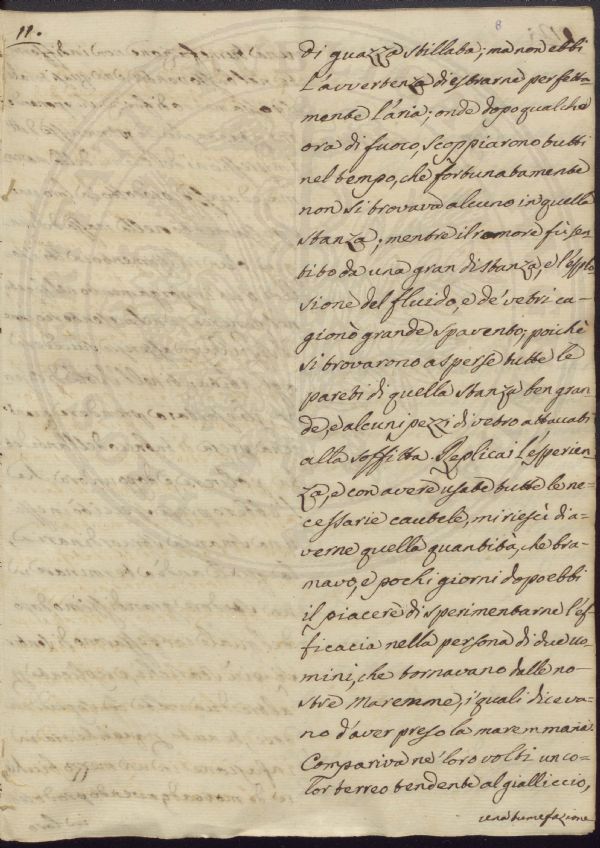 11.
di guazza stillata; ma non ebbi
l'avvertenza di estrarne perfetta-
mente l'aria; onde dopo qualche
ora di fuoco, scoppiarono tutti
nel tempo, che fortunatamente
non si trovava alcuno in quella
stanza; mentre il romore fù sen
tito da una gran distanza, e l'esplo-
sione del fluido, e de' vetri ca-
gionò grande spavento; poichè
si trovarono asperse tutte le
pareti di quella stanza ben gran
de, e alcuni pezzi di vetro attaccati
alla soffitta. Replicai l'esperien
za, e con avere usate tutte le ne-
cessarie cautele, mi riescì di a-
verne quella quantità, che bra-
navo, e pochi giorni dopo ebbi
il piacere di sperimentarne l'ef
ficacia nella persona di due uo-
mini, che tornavano dalle no-
stre Maremme, i quali diceva-
no d'aver preso la maremmana.
Compariva ne' loro volti un co-
lor terreo tendente al gialliccio,
una tumefazione